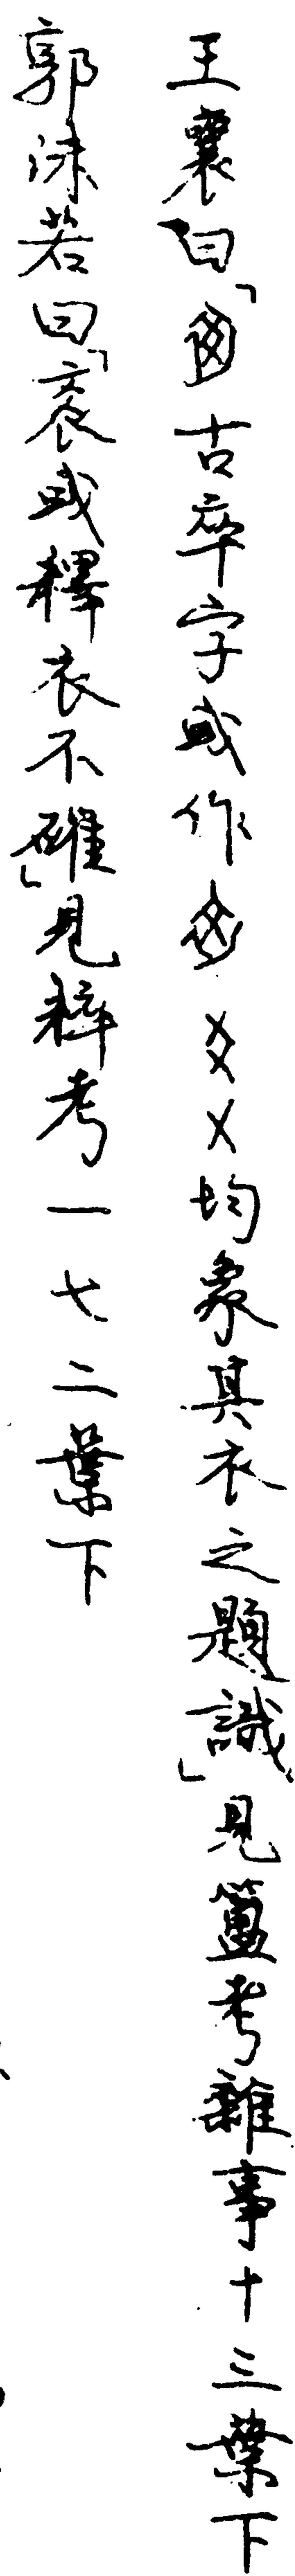 王襄曰「古卒字或作㐅均象其衣之題識」見簠考雜事十三葉下
郭沫若曰「袤或釋衣不確」見粹考一七二葉下